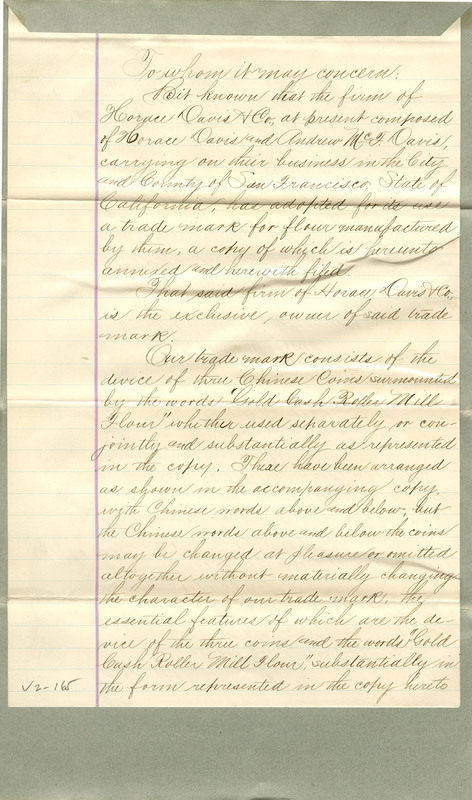 To whom it may concern:
Be it known that the firm of
Horace Davis & Co., at present composed
of Horace Davis and Andrew McF. Davis,
carrying on their business in the City
and County of San Francisco, State of
California, has adopted for its use
a trade mark for flour manufactured
by them, a copy of which is hereunto
annexed and herewith filed.
That said firm of Horace Davis & Co.,
is the exclusive owner of said trade
mark.
Our trade mark consists of the
device of three Chinese Coins surmounted
by the words "Gold Cash Roller Mill
Flour" whether used separately or con-
jointly and substantially as represented
in the copy. These have been arranged
as shown in the accompanying copy,
with Chinese words above and below, but
the Chinese words above and below the coins
may be changed at pleasure or omitted
altogether without materially changing
the character of our trade mark, the
essential features of which are the de-
vice of the three coins and the words "Gold
Cash Roller Mill Flour", substantially in
the form represented in the copy hereto
V2-165